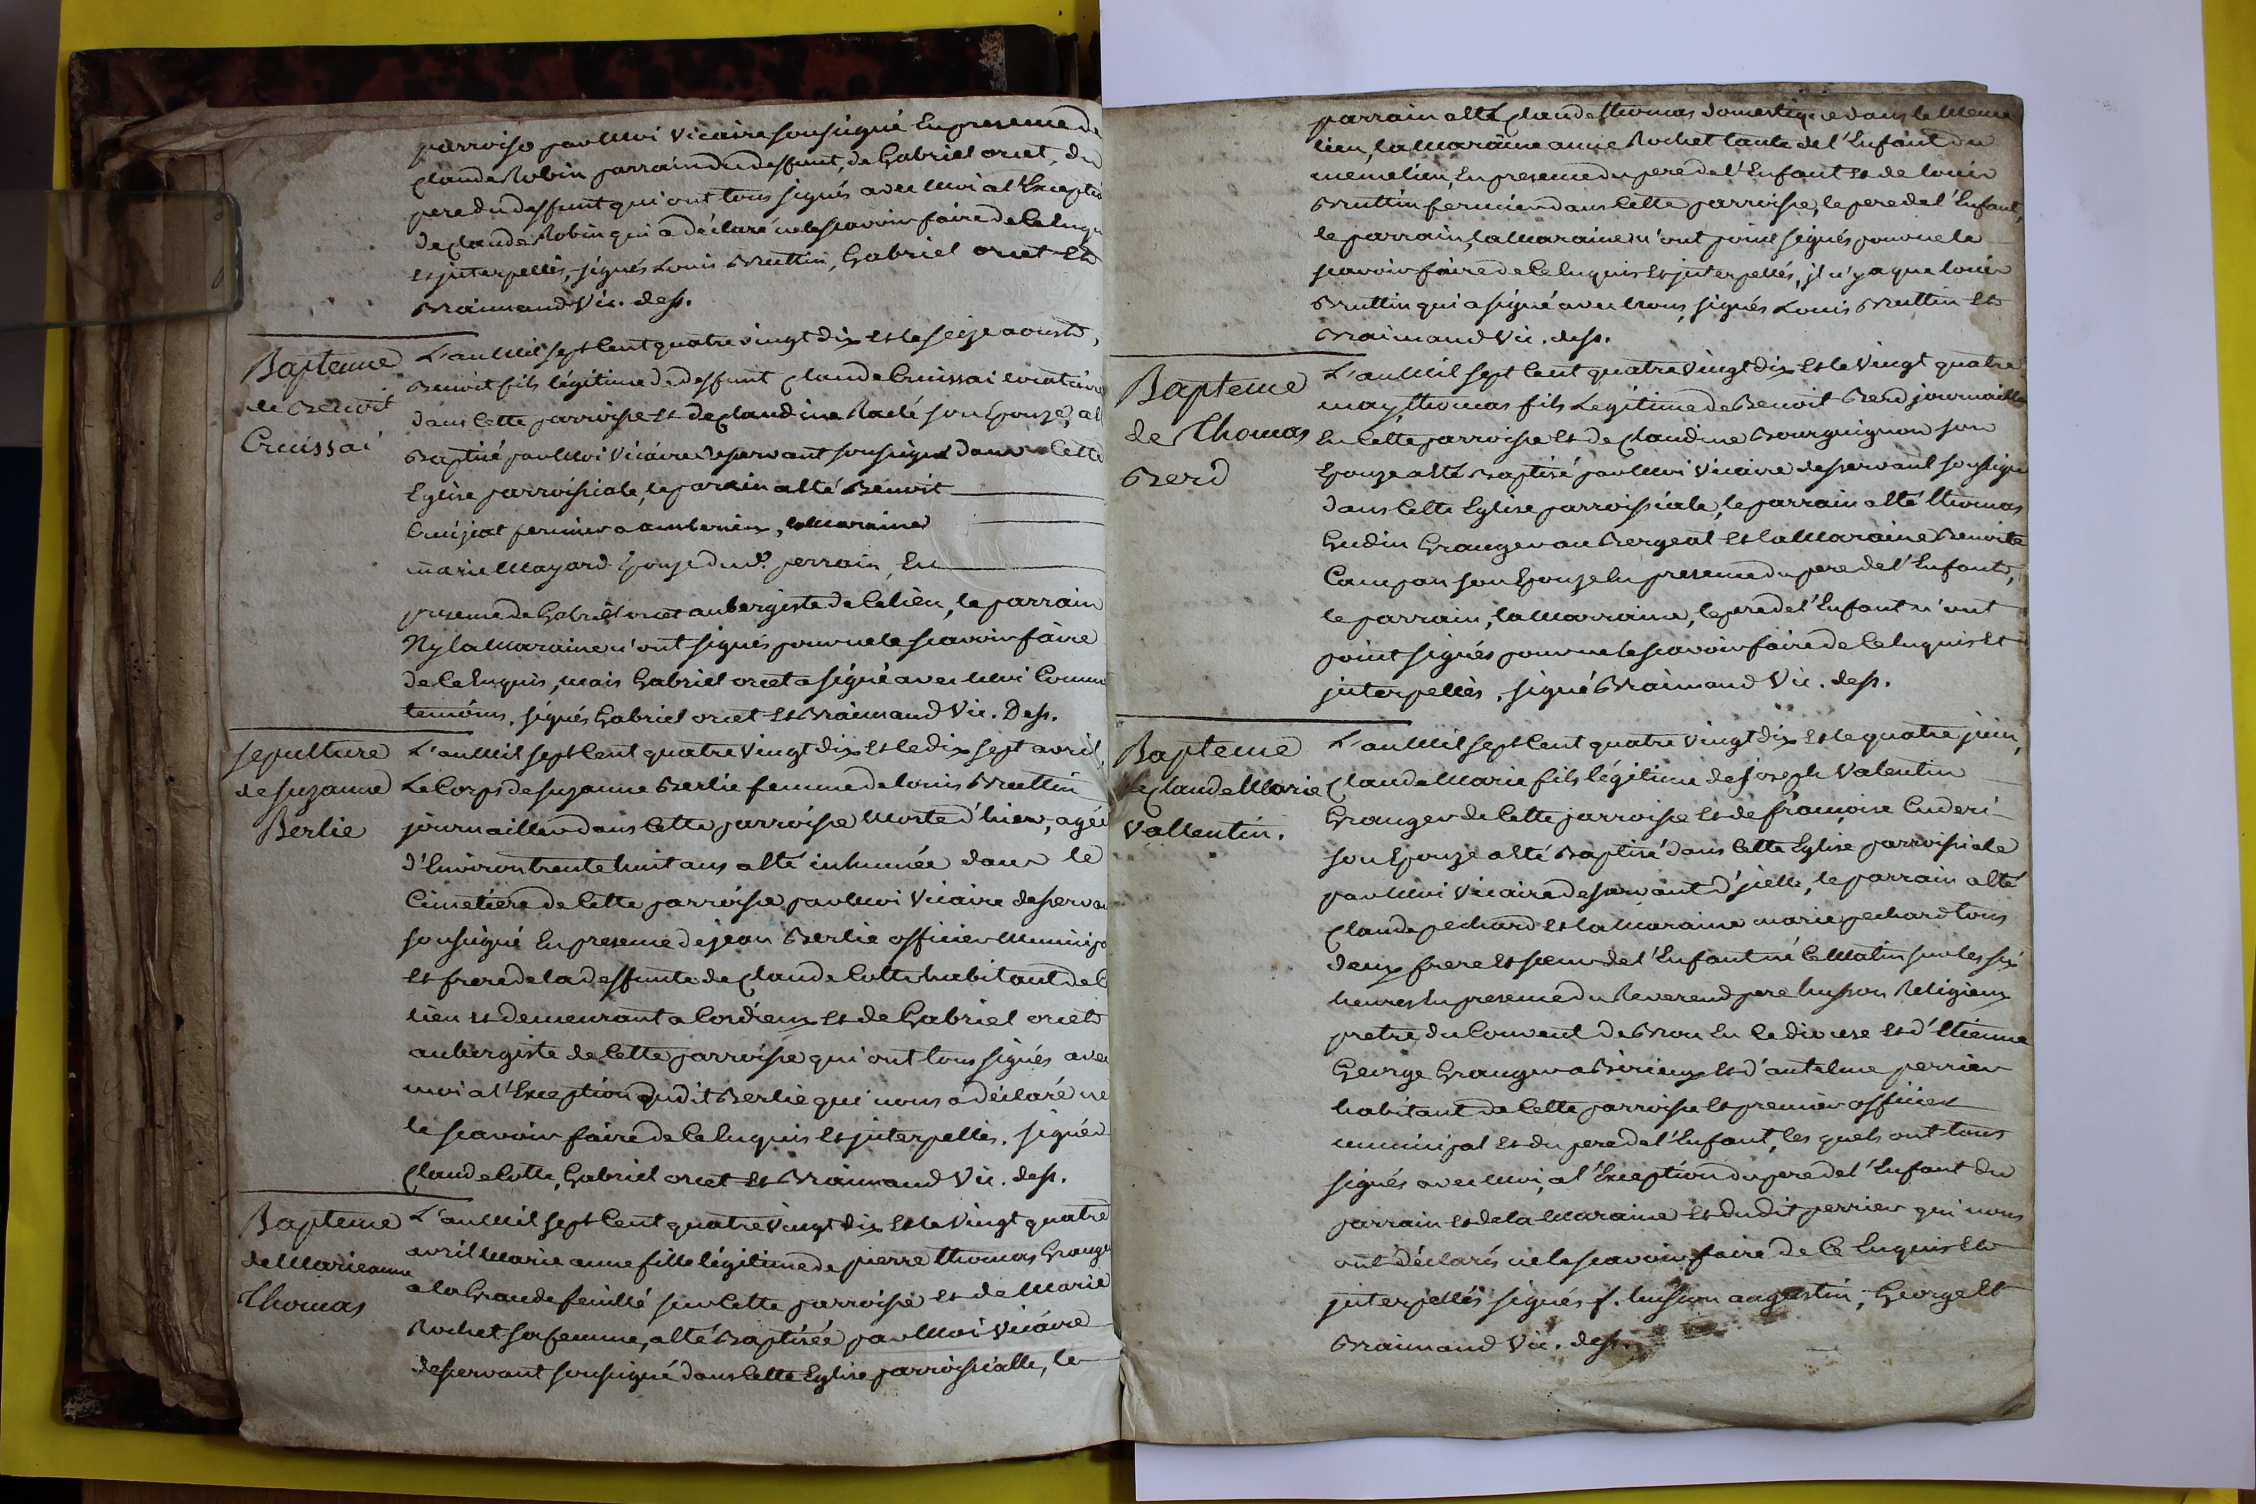 parroise par Moi Vicaire sousigné En presence de
Claude Robin parrain du deffunt, de Gabriel orcet, du
pere du deffunt qui ont tous signés avec Moi a l'Exceptio
de Claude Robin qui a déclaré ne le scavoir faire de Ce Enqu
Et interpellés, signés Louis Bruttin, Gabriel orcet Et
Braimand Vic. dess.
Bapteme
de Benoit
Cruissai
L'an Mil sept Cent quatre vingt dix Et le seize aoust,
Benoit fils légitime de deffunt Claude Cruissai
dans Cette parroisse Et de Claudine Radé son Epouze, a
Baptisé par Moi Vicaire desservant sousigné dans Cette
Eglise parroissiale, le parrain a Eté Benoit
fermier a amberieux, la Maraine
marie Mayard Epouze du d. perrain, En
presence de Gabriel orcet aubergiste de Ce lieu, le parrain
Ny la Maraine n'ont signés pour ne le scavoir faire
de Ce Enquis, mais Gabriel orcet a signé avec Moi Comm
temoins. signés Gabriel orcet Et Braimand Vic. Dess.
sepulture
de suzanne
Berlie
L'an Mil sept Cent quatre Vingt dix Et le dix sept avril,
Le Corps de suzanne Berlie femme de Louis Bruttin
journaillier dans Cette parroisse Morte d'hier, agée
d'Environ trente huit ans a Eté inhumée dans le
Cimetiere de Cette parroisse par Moi Vicaire desserva
sousigné En presence de jean Berlie officier Municipa
Et frere de la deffunte de Claude Cotte habitant de C
lieu Et demeurant a Cordieux Et de Gabriel orcet
aubergiste de Cette parroisse qui ont tous signés avec
moi a l'Exception dudit Berlie qui nous a déclaré ne
le scavoir faire de Ce Enquis Et interpellés. signés
Claude Cotte, Gabriel orcet Et Braimand Vic. dess.
Bapteme
de Marie anne
Thomas
L'an Mil sept Cent quatre Vingt dix Et le Vingt quatre
avril Marie anne fille légitime de pierre thomas Grange
a la Grande feuille sur Cette parroisse Et de Marie
Rochet sa femme, a Eté Baptisée par Moi Vicaire
desservant sousigné dans Cette Eglise parroissialle, le
parrain a Eté Claude thomas domestique dans le Meme
lieu, la Maraine anne Rochet tante de l'Enfant du
meme lieu, En presence du pere de l'Enfant Et de louis
Bruttin fermier dans Cette parroisse, le pere de l'Enfant,
le parrain, la Maraine n'ont point signés pour ne le
scavoir faire de Ce Enquis Et interpellés, il n'y a que louis
Bruttin qui a signé avec Nous, signés Louis Bruttin Et
Braimand Vic. dess.
Bapteme
de Thomas
Berd
L'an Mil sept Cent quatre Vingt dix Et le Vingt quatre
may, thomas fils Legitime de Benoit Berd journaillie
En Cette parroisse Et de Claudine Bourguignon son
Epouze a Eté Baptisé par Moi Vicaire desservant sousigne
dans Cette Eglise parroissiale, le parrain a Eté thomas
Gudin Granger au Bergeat Et la Maraine Benoite
Campan son Epouze En presence du pere de l'Enfant,
le parrain, la Marraine, le pere de l'Enfant n'ont
point signés pour ne le scavoir faire de Ce Enquis Et
interpellés. signé Braimand Vic. dess.
Bapteme
de Claude Marie
Vallentin.
L'an Mil sept Cent quatre Vingt dix Et le quatre juin,
Claude Marie fils légitime de joseph Valentin
Granger de Cette parroisse Et de françoise Cuderi
son Epouze a Eté Baptisé dans Cette Eglise parroissiale
par Moi Vicaire desservant d'icelle, le parrain a Eté
Claude pechard Et la Maraine marie pechard tous
deux frere Et sœur de l'Enfant né Ce Matin sur les six
heures En presence du Reverend pere husson Religieux
pretre du Couvent de Brou En Ce diocese Et d'Etienne
George Granger a Birieux Et d'antelme perrier
habitant de Cette parroisse Et premier officier
municipal Et du pere de l'Enfant, les quels ont tous
signés avec Moi, a l'Exception du pere de l'Enfant du
parrain Et de la Maraine Et dudit perrier qui nous
ont déclarés ne le scavoir faire de Ce Enquis Et
interpellés signés f. husson augustin, George Et
Braimand Vic. dess.